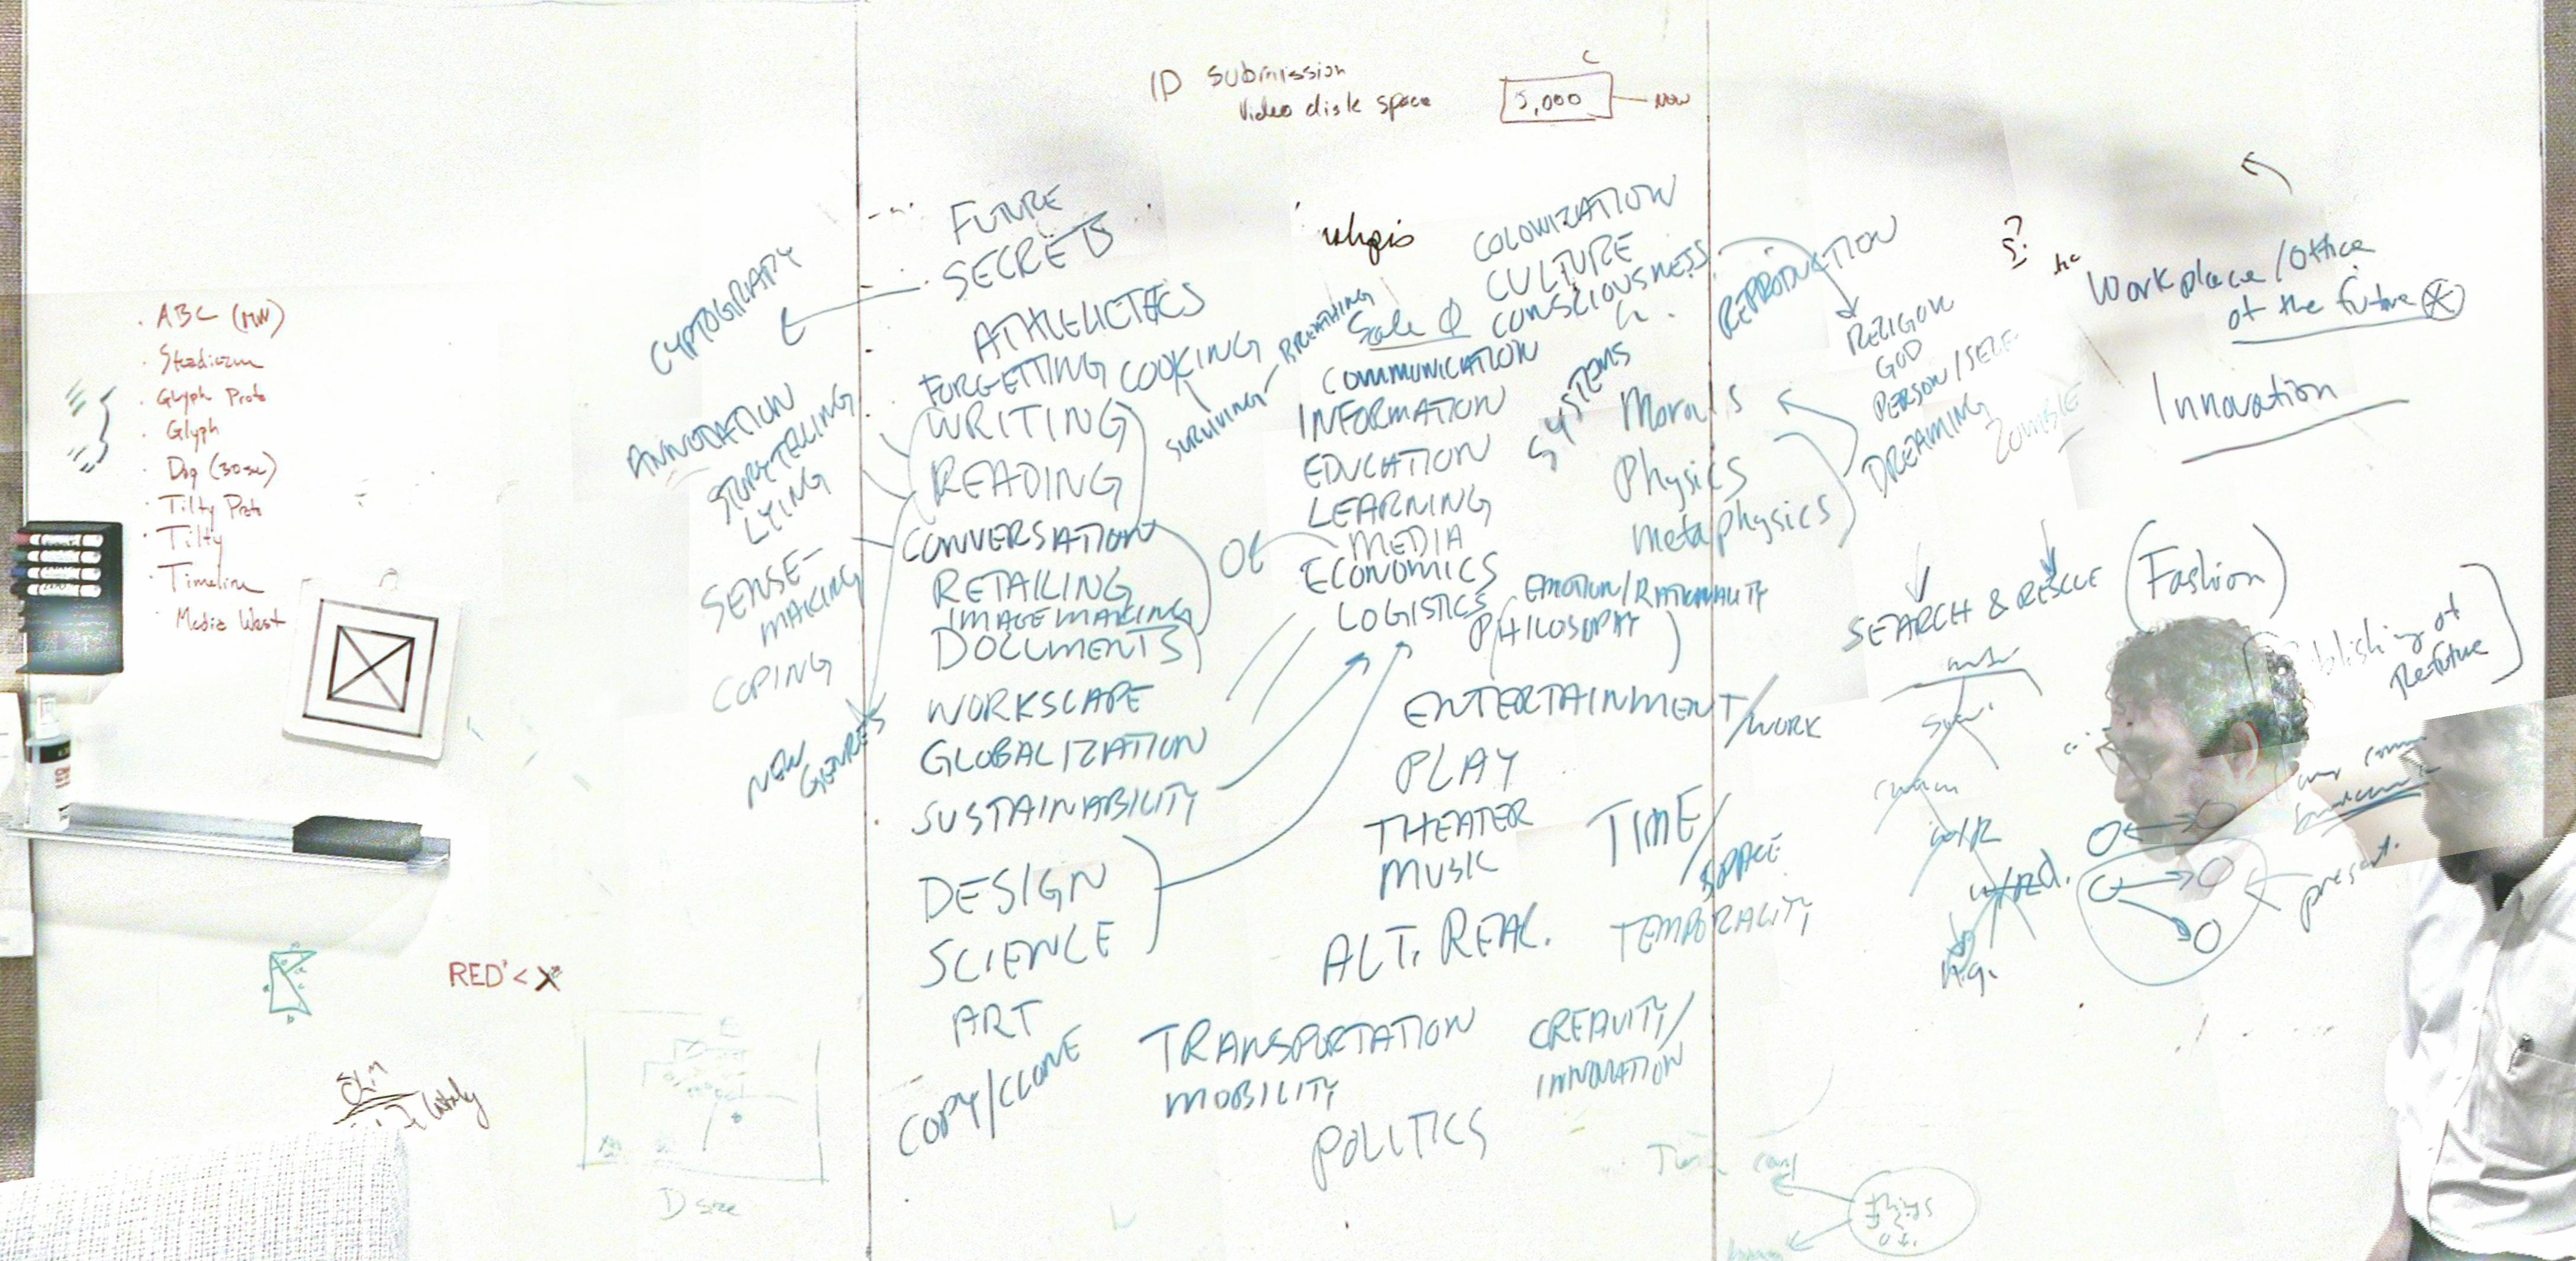 ID submission
Video disk space
5,000
NOW
ABC (MW)
Glyph Proto
Glyph
Dog (30sec)
Tilty Proto
Tilty
Timeline
Media West
RED < X
D size
CYPTOGRAPY
ANNOTATION
STORYTELLING
LYING
SENSE-
MAKING
COPING
NEW
GENRES
FUTURE
SECRETS
FORGETTING
COOKING
WRITING
READING
CONVERSATION
RETAILING
IMAGE MAKING
DOCUMENTS
WORKSCAPE
GLOBALIZATION
SUSTAINABILITY
DESIGN
SCIENCE
ART
COPY/CLONE
SURVIVING
BREATHING
OF
COLONIZATION
CULTURE
CONSCIOUSNESS
COMMUNICATION
INFORMATION
EDUCATION
LEARNING
MEDIA
ECONOMICS
LOGISTICS
EMOTION/RATIONALITY
PHILOSOPHY
SYSTEMS
Morals
Physics
metaphysics
ENTERTAINMENT/WORK
PLAY
THEATER
MUSIC
TIME/
SPACE
TEMPORALITY
ALT. REAL.
TRANSPORTATION
MOBILITY
CREAVITY/
INNOVATION
POLITICS
REPRODUCTION
RELIGION
GOD
PERSON/SELF
DREAMING
ZOMBIE
Workplace/Office
of the future
Innovation
SEARCH & RESCUE
(Fashion)
present
things